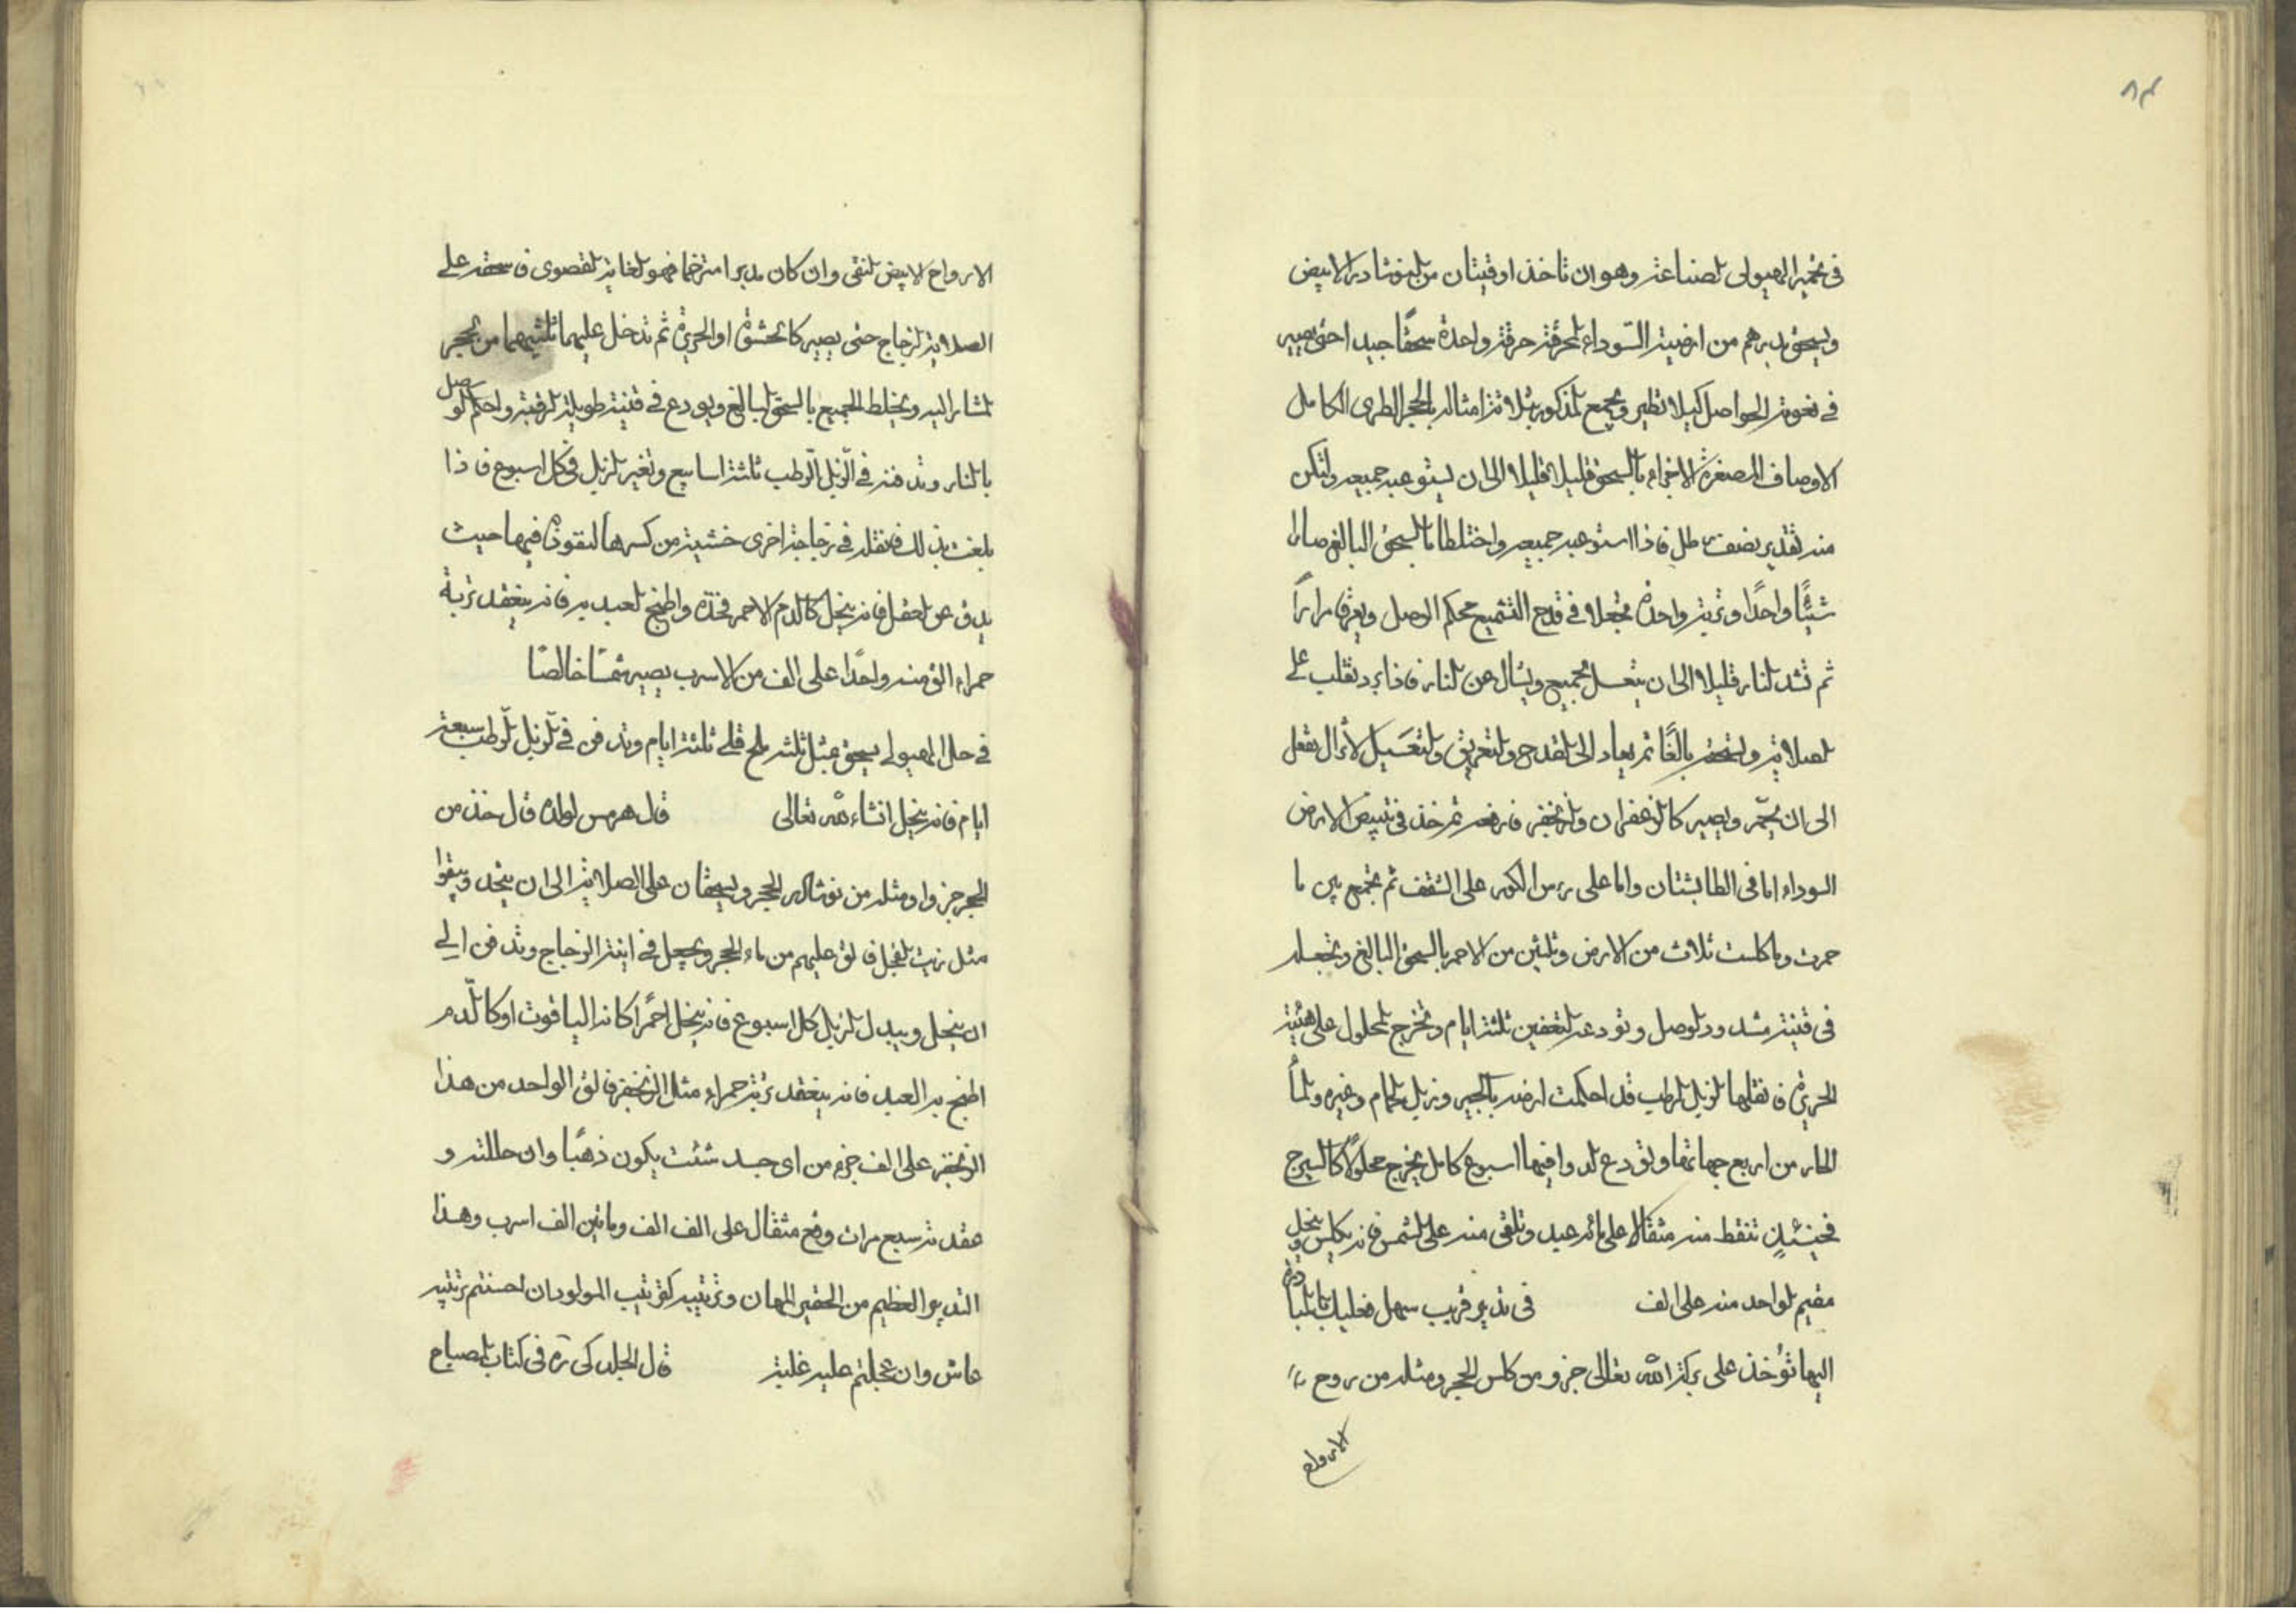 ٨٣
في تخمير الهيولى الصناعة وهو ان تاخذ اوقيتان من النوشادر الابيض
ويسحق بدرهم من ارضية السوداء المحرقة حرقة واحدة سحقًا جيدا حتى يصير
في نعومة الحواصل كيلا تطير ويجمع المذكور بثلاثة امثاله بالحجر الطرى الكامل
الاوصاف المصغرة الاجزاء بالسحق قليلا قليلا الى ان يستوعبه جميعه ولتكن
منه تقدير نصف رطل فاذا استوعبه جميعه واختلطا بالسحق البالغ صارا
شيئًا واحدًا وتربة واحدة تجعلا في قدح التشميع محكم الوصل ويعرق مرارًا
ثم تشد النار قليلا الى ان يتعسل الجميع ويشال عن النار فاذا برد تقلب على
الصلاية وتسحقه بالغًا ثم يعاد الى القدح والتعريق والتعسيل لا تزال تفعل
الى ان يحمّر ويصير كالزعفران والزنجفر فارفعه ثم خذ في تبييض الارض
السوداء اما في الطابشتان واما على رءس الكور على الشقف ثم تجمع بين ما
حمرت وما كلست ثلاث من الارض وثلثين من الاحمر بالسحق البالغ وتجعله
في قنينة مشدود الوصل وتودعه التعفين ثلثة ايام وتخرج المحلول على هيئة
الحريرة فانقلها الزبل الرطب قد احكمت ارضه بالجير وزبل الحمام وغيره والماء
الحار من اربع جهاتها وتودع الدوا فيها اسبوع كامل يخرج محلولًا كالسيرج
فحينئذٍ تنقط منه مثقالا على مائه عبد وتلقى منه على الشمس فانه يكلس ينحل و
مقيم الواحد منه على الف في تدبير قريب سهل فعليك بالمبادرة
اليها تؤخذ على بركة الله تعالى جزو من كلس الحجر ومثله من روح
الارواح
الارواح الابيض النقى وان كان مدبرا مترخما فهو الغاية القصوى فاسحقه على
الصلاية الزجاج حتى يصير كالحشوة او الحريرة ثم تدخل عليهما ثلثيهما من الحجر
المشار اليه ويخلط الجميع بالسحق البالغ ويودع في قنينة طويلة الرقبة واحكم الوصل
بالنار وتدفنه في الزبل الرطب ثلثة اسابيع وتغير الزبل في كل اسبوع فاذا
بلغت بذلك فانقله في زجاجة اخرى خشية من كسرها لنفوذه فيها حيث
يدق عن العقل فانه ينحل كالدم الاحمر فخذه واطبخ العبد به فانه ينعقد تربة
حمراء الق منه واحدًا على الف من الاسرب يصير شمسًا خالصًا
في حل الهيولى يسحق بمثل ثلثه ملح قلى ثلثة ايام وتدفن في الزبل الرطب سبعة
ايام فانه ينحل انشاء الله تعالى قال هرمس لولده قال خذ من
الحجر جزوا ومثله من نوشادر الحجر ويسحقان على الصلاية الى ان ينحد ويبقوا
مثل زيت الفجل فالق عليهم من ماء الحجر ويجعل في انية الزجاج وتدفن الى
ان ينحل ويبدل الزبل كل اسبوع فانه ينحل احمرًا كانه الياقوت او كالدم
اطبخ به العبد فانه ينعقد تربة حمراء مثل الزنجفر فالق الواحد من هذا
الزنجفر على الف جزء من اى جسد شئت يكون ذهبًا وان حللته و
عقدته سبع مرات وقع مثقال على الف الف وماتين الف اسرب وهذا
التدبير العظيم من الحقير المهان وتربيبه كتربيب المولود ان احسنتم تربيته
عاش وان عجلتم عليه غليته قال الجلدكى ره في كتاب المصباح